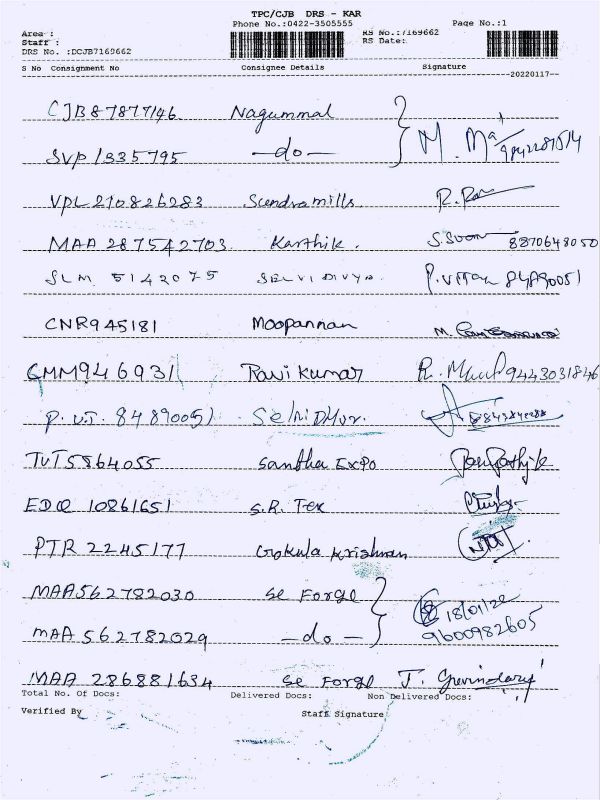 TPC/CJB DRS - KAR
Phone No.:0422-3505555 Page No.:1
Area :
Staff :
DRS No. :DCJB7169662
RS No.:7169662
RS Date:
S No Consignment No Consignee Details Signature
20220117
CJB87877146 Nagummal
SVP 1335795 -do- M.
VPL 210826283 Sundramills R.
MAA 287542703 Karthik. 8870648050
SLM 5142075 SELVI DIVYA.
CNR945181 Moopannan M.
GMM946931 Ravi Kumar R. 9443031846
P.V.T. 8489005)
TUT5864055 Santha Expo
EDQ 10861651 S.R. Tex
PTR 2245177 Gokula Krishnan
MAA562782030 SE FORGE 18/01/22
MAA 562782029 -do- 9600982605
MAA 286881634 SE FORGE J. Govindaraj
Total No. Of Docs: Delivered Docs: Non Delivered Docs:
Verified By Staff Signature